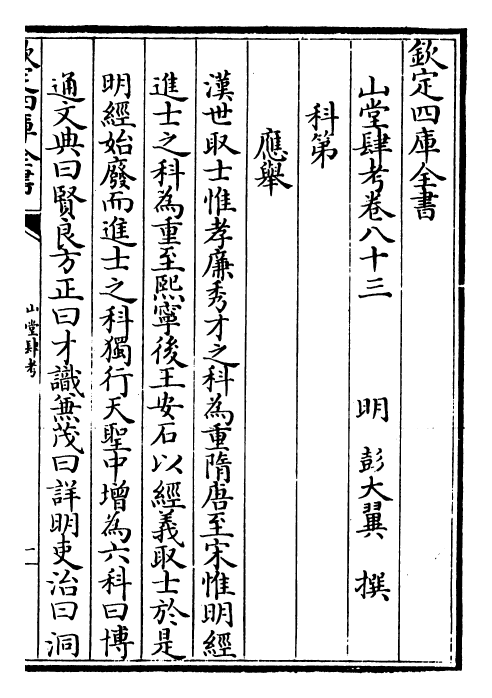 欽定四庫全書
山堂肆考卷八十三
明 彭大翼 撰
科第
應舉
漢世取士惟孝廉秀才之科為重隋唐至宋惟明經
進士之科為重至熙寧後王安石以經義取士於是
明經始廢而進士之科獨行天聖中增為六科曰博
通文典曰賢良方正曰才識兼茂曰詳明吏治曰洞
欽定四庫全書
山堂肆考
一